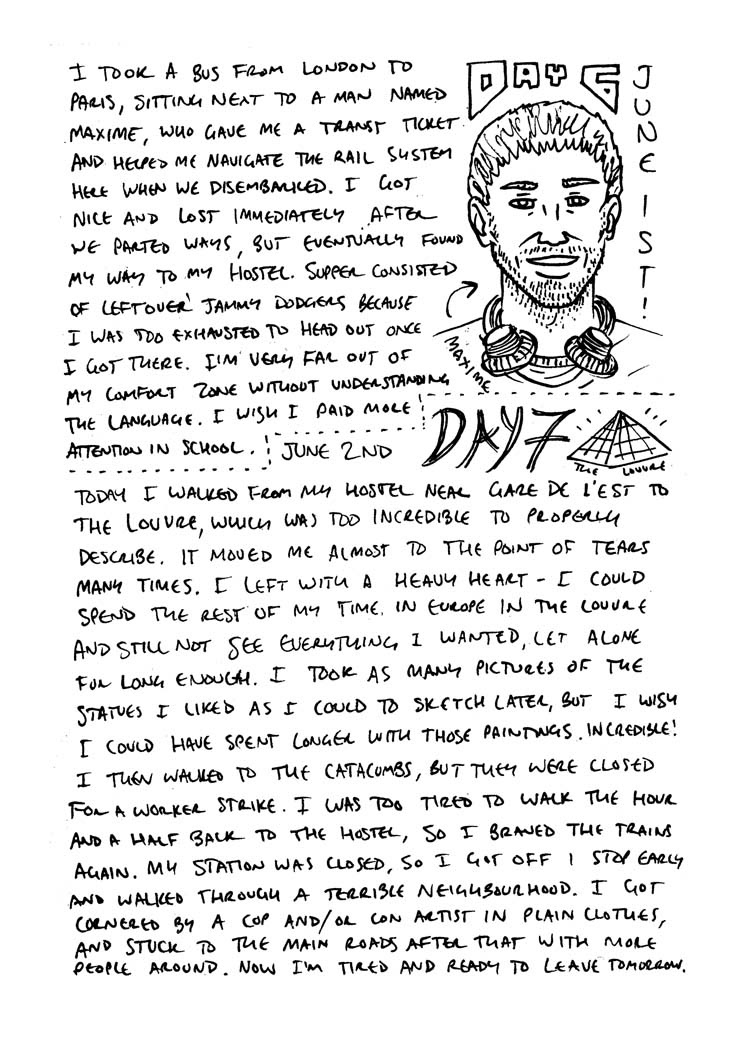 DAY 6
JUNE 1ST!
I TOOK A BUS FROM LONDON TO
PARIS, SITTING NEXT TO A MAN NAMED
MAXIME, WHO GAVE ME A TRANSIT TICKET
AND HELPED ME NAVIGATE THE RAIL SYSTEM
HERE WHEN WE DISEMBARKED. I GOT
NICE AND LOST IMMEDIATELY AFTER
WE PARTED WAYS, BUT EVENTUALLY FOUND
MY WAY TO MY HOSTEL. SUPPER CONSISTED
OF LEFTOVER JAMMY DODGERS BECAUSE
I WAS TOO EXHAUSTED TO HEAD OUT ONCE
I GOT THERE. I'M VERY FAR OUT OF
MY COMFORT ZONE WITHOUT UNDERSTANDING
THE LANGUAGE. I WISH I PAID MORE
ATTENTION IN SCHOOL.
MAXIME
JUNE 2ND
DAY 7
THE LOUVRE
TODAY I WALKED FROM MY HOSTEL NEAR GARE DE L'EST TO
THE LOUVRE, WHICH WAS TOO INCREDIBLE TO PROPERLY
DESCRIBE. IT MOVED ME ALMOST TO THE POINT OF TEARS
MANY TIMES. I LEFT WITH A HEAVY HEART - I COULD
SPEND THE REST OF MY TIME IN EUROPE IN THE LOUVRE
AND STILL NOT SEE EVERYTHING I WANTED, LET ALONE
FOR LONG ENOUGH. I TOOK AS MANY PICTURES OF THE
STATUES I LIKED AS I COULD TO SKETCH LATER, BUT I WISH
I COULD HAVE SPENT LONGER WITH THOSE PAINTINGS. INCREDIBLE!
I THEN WALKED TO THE CATACOMBS, BUT THEY WERE CLOSED
FOR A WORKER STRIKE. I WAS TOO TIRED TO WALK THE HOUR
AND A HALF BACK TO THE HOSTEL, SO I BRAVED THE TRAINS
AGAIN. MY STATION WAS CLOSED, SO I GOT OFF 1 STOP EARLY
AND WALKED THROUGH A TERRIBLE NEIGHBOURHOOD. I GOT
CORNERED BY A COP AND/OR CON ARTIST IN PLAIN CLOTHES,
AND STUCK TO THE MAIN ROADS AFTER THAT WITH MORE
PEOPLE AROUND. NOW I'M TIRED AND READY TO LEAVE TOMORROW.